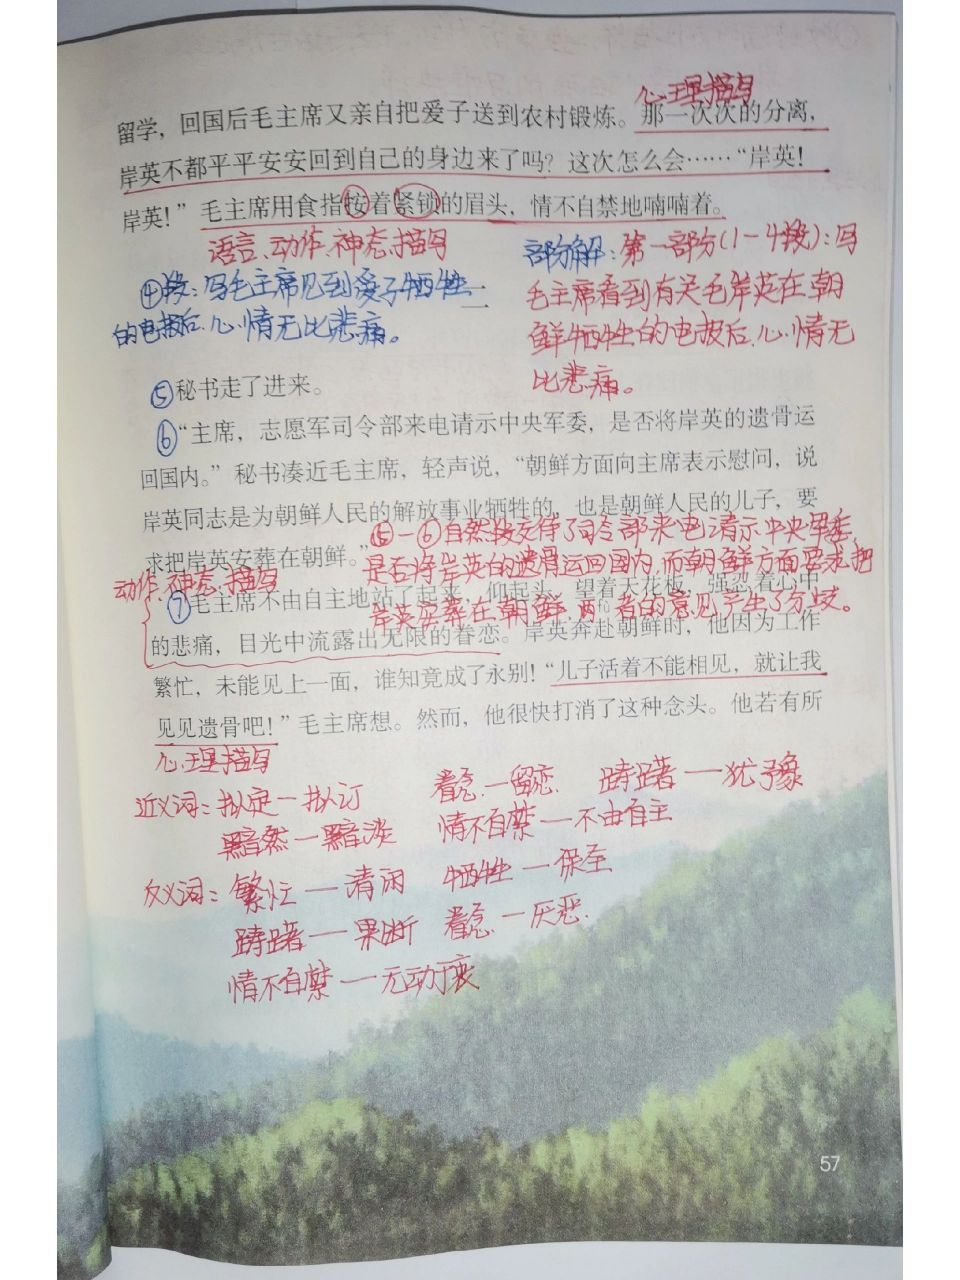 心理描写
留学，回国后毛主席又亲自把爱子送到农村锻炼。那一次次的分离，
岸英不都平平安安回到自己的身边来了吗？这次怎么会……“岸英！
岸英！”毛主席用食指按着紧锁的眉头，情不自禁地喃喃着。
语言、动作、神态、描写
④段：写毛主席见到爱子牺牲
的电报后，心情无比悲痛。
部分解：第一部分（1－4段）：写
毛主席看到有关毛岸英在朝
鲜牺牲的电报后，心情无
比悲痛。
⑤秘书走了进来。
⑥“主席，志愿军司令部来电请示中央军委，是否将岸英的遗骨运
回国内。”秘书凑近毛主席，轻声说，“朝鲜方面向主席表示慰问，说
岸英同志是为朝鲜人民的解放事业牺牲的，也是朝鲜人民的儿子，要
求把岸英安葬在朝鲜。”
⑤－⑥自然段交待了司令部来电请示中央军委，
是否将岸英的遗骨运回国内，而朝鲜方面要求把
岸英安葬在朝鲜，两者的意见产生了分歧。
动作、神态、描写
⑦毛主席不由自主地站了起来，仰起头，望着天花板，强忍着心中
的悲痛，目光中流露出无限的眷恋。岸英奔赴朝鲜时，他因为工作
繁忙，未能见上一面，谁知竟成了永别！“儿子活着不能相见，就让我
见见遗骨吧！”毛主席想。然而，他很快打消了这种念头。他若有所
心理描写
近义词：拟定－拟订 眷恋－留恋 踌躇－犹豫
黯然－黯淡 情不自禁－不由自主
反义词：繁忙－清闲 牺牲－保全
踌躇－果断 眷恋－厌恶
情不自禁－无动于衷
57